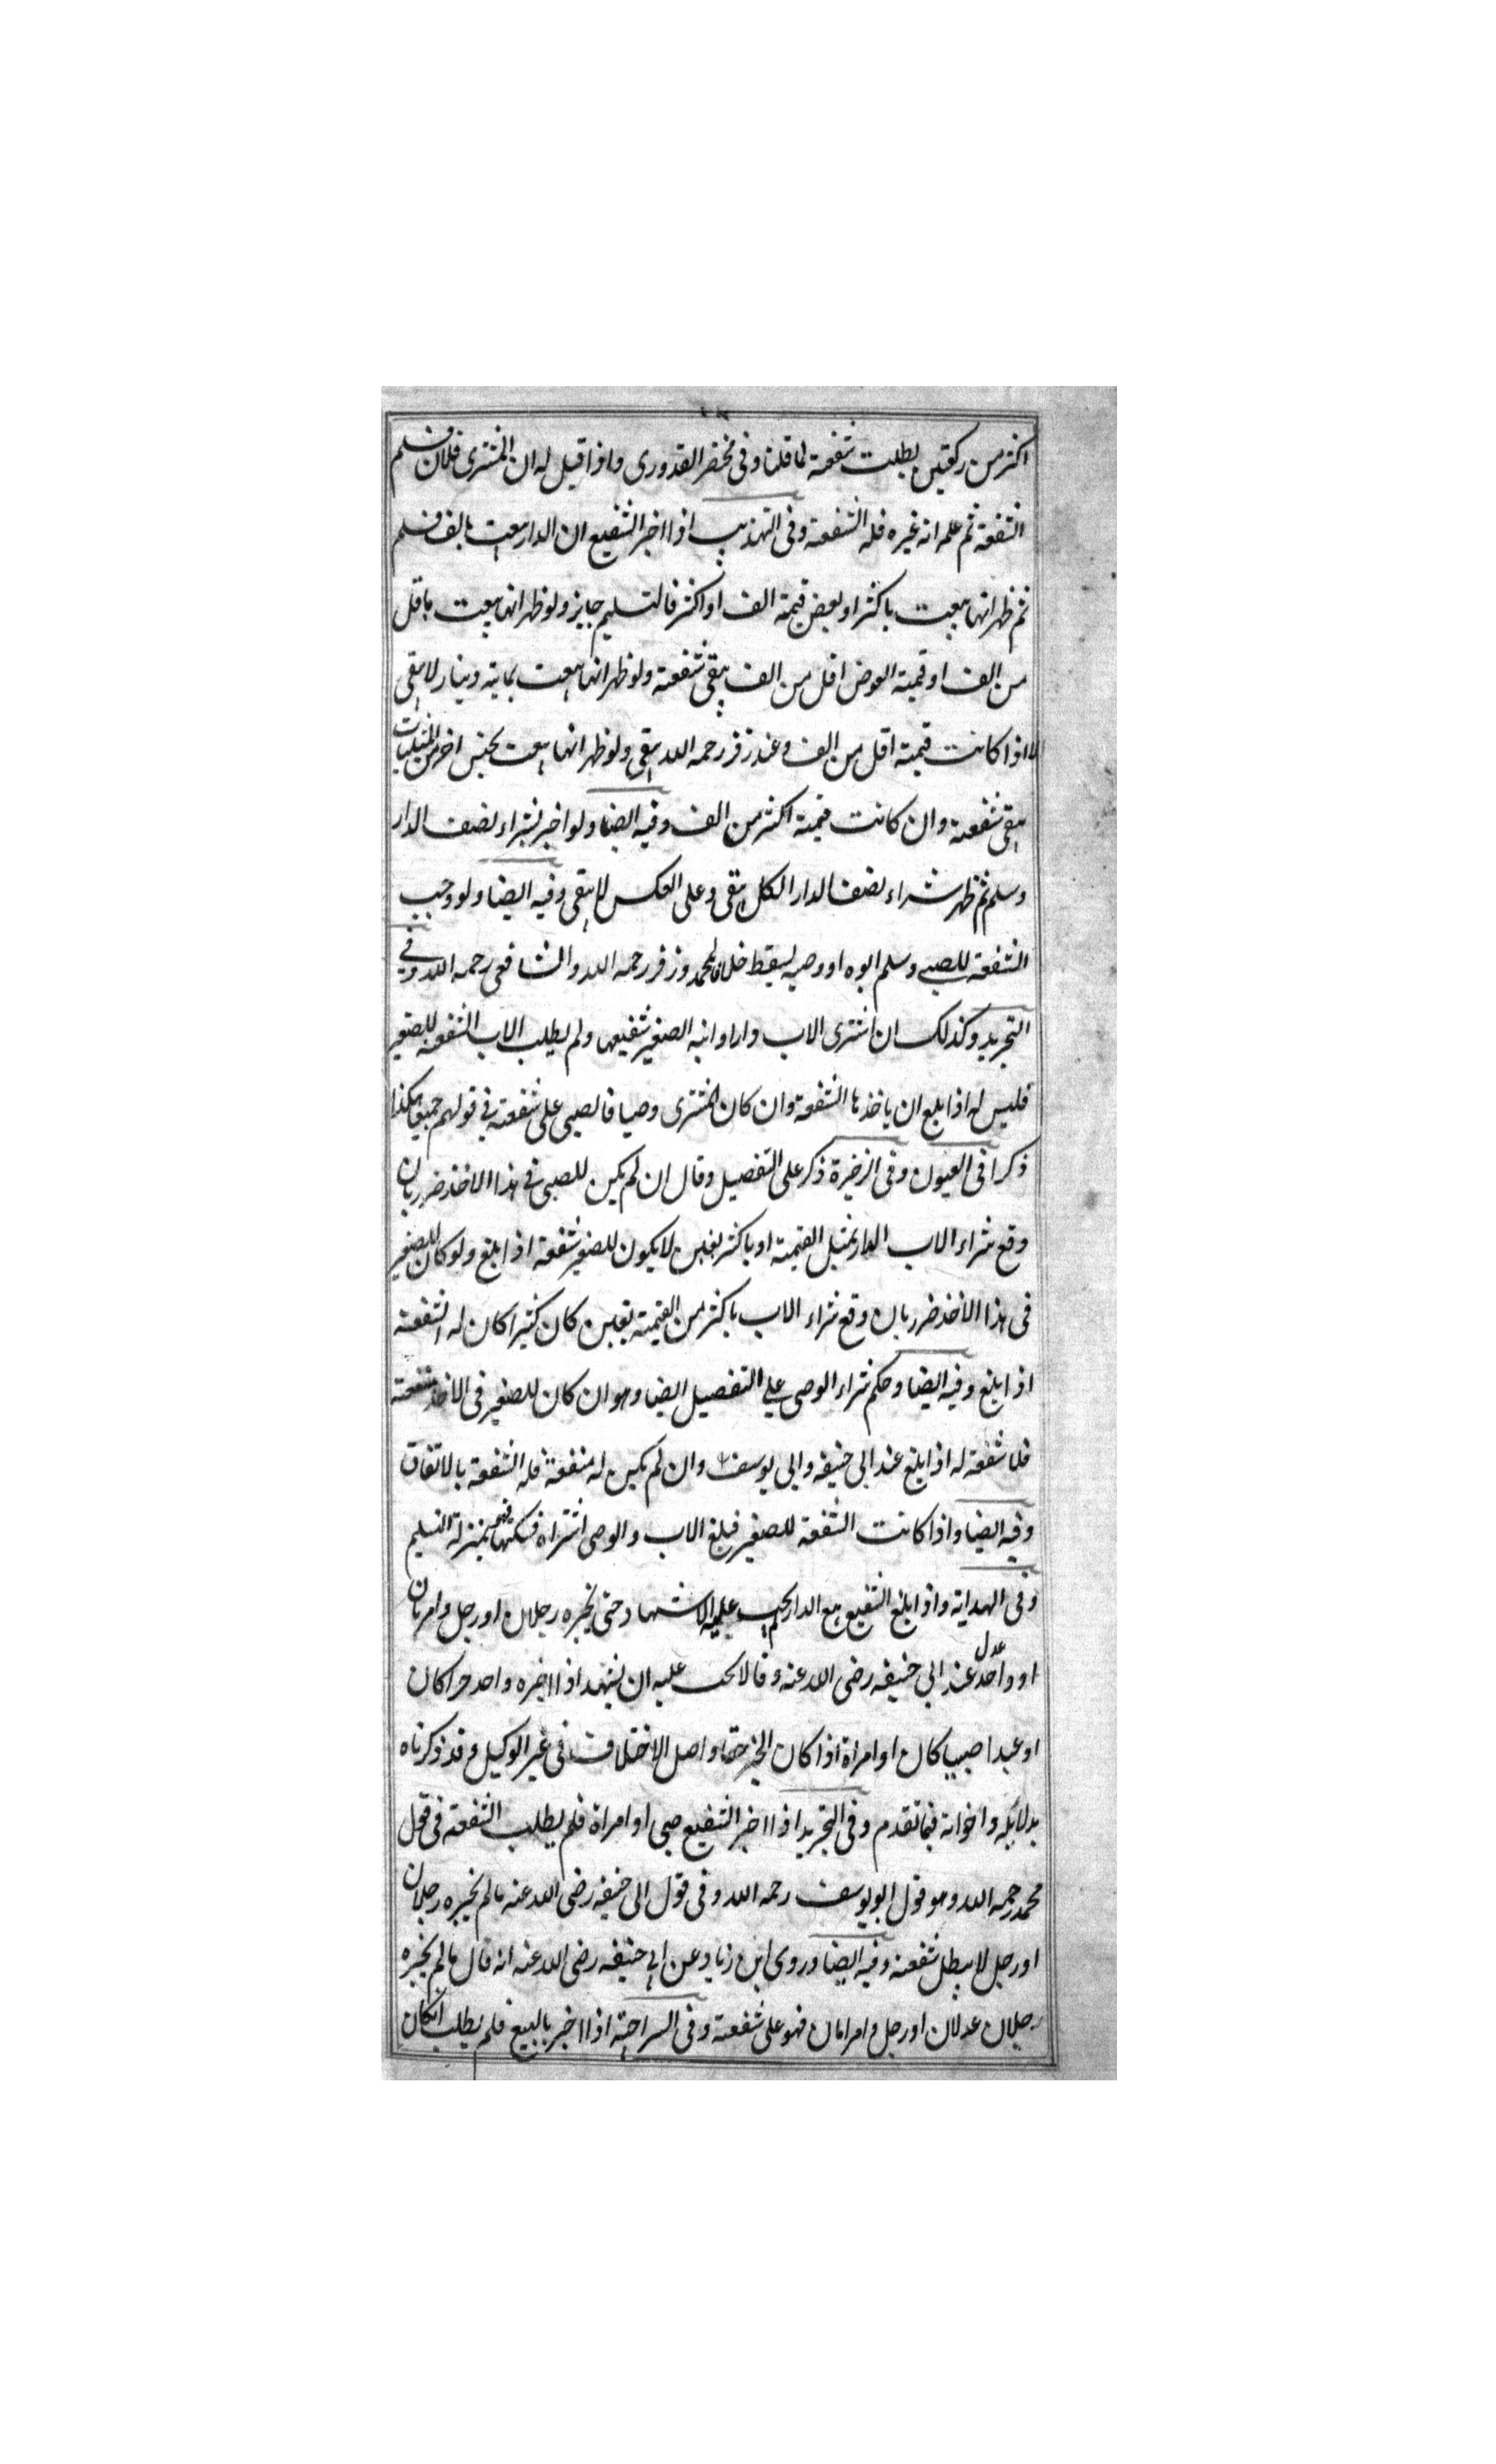 اكثر من ركعتين بطلت شفعته لما قلنا وفى مختصر القدورى واذا قيل له ان المشترى فلان فسلم
الشفعة ثم علم انه غيره فله الشفعة وفى التهذيب اذا اخبر الشفيع ان الدار بيعت بالف فسلم
ثم ظهر انها بيعت باكثر او بعوض قيمته الف او اكثر فالتسليم جايز ولو ظهر انها بيعت باقل
من الف او قيمته العوض اقل من الف يبقى شفعته ولو ظهر انها بيعت بماية دينار لا يبقى
الا اذا كانت قيمته اقل من الف وعند زفر رحمه الله يبقى ولو ظهر انها بيعت بجنس اخر من المثليات
يبقى شفعته وان كانت قيمته اكثر من الف وفيه ايضا ولو اخبر بشراء نصف الدار
وسلم ثم ظهر شراء نصف الدار الكل يبقى وعلى العكس لا يبقى وفيه ايضا ولو وجب
الشفعة للصبى وسلم ابوه او وصيه يسقط خلافا لمحمد وزفر رحمه الله والشافعى رحمه الله وفى
التجريد وكذلك ان اشترى الاب دارا وابنه الصغير شفيعها ولم يطلب الاب الشفعة للصغير
فليس له اذا بلغ ان ياخذها الشفعة وان كان المشترى وصيا فالصبى على شفعته فى قولهم جميعا هكذا
ذكرا فى العيون وفى الذخيرة ذكر على التفصيل وقال ان لم يكن للصبى فى هذا الاخذ ضرر بان
وقع شراء الاب الدار بمثل القيمته او باكثر بغبن لا يكون للصغير شفعة اذا بلغ ولو كان للصغير
فى هذا الاخذ ضرر بان وقع شراء الاب باكثر من القيمته بغبن كان كثيرا كان له الشفعة
اذا بلغ وفيه ايضا وحكم شراء الوصى على التفصيل ايضا وهو ان كان للصغير فى الاخذ منفعته
فلا شفعته له اذا بلغ عند ابى حنيفه وابى يوسف وان لم يكن له منفعة فله الشفعة بالاتفاق
وفيه ايضا واذا كانت الشفعة للصغير فبلغ الاب والوصى اشتراه فسكتا فهو بمنزلة التسليم
وفى الهداية واذا بلغ الشفيع بيع الدار لم يجب عليه الاشهاد حتى يخبره رجلان او رجل وامرتان
او واحد عدل عند ابى حنيفه رضى الله عنه وقالا يجب عليه ان يشهد اذا اخبره واحد حرا كان
او عبدا صبيا كان او امراة اذا كان الخبر حقا واصل الاختلاف فى غير الوكيل وقد ذكرناه
بدلائله واخواته فيما تقدم وفى التجريد اذا اخبر الشفيع صبى او امراة فلم يطلب الشفعته فى قول
محمد رحمه الله وهو قول ابو يوسف رحمه الله وفى قول ابى حنيفه رضى الله عنه ما لم يخبره رجلان
او رجل لا يبطل شفعته وفيه ايضا وروى ابن زياد عن ابى حنيفه رضى الله عنه انه قال ما لم يخبره
رجلان عدلان او رجل وامراتان فهو على شفعته وفى السراجية اذا اخبر بالبيع فلم يطلب ان كان